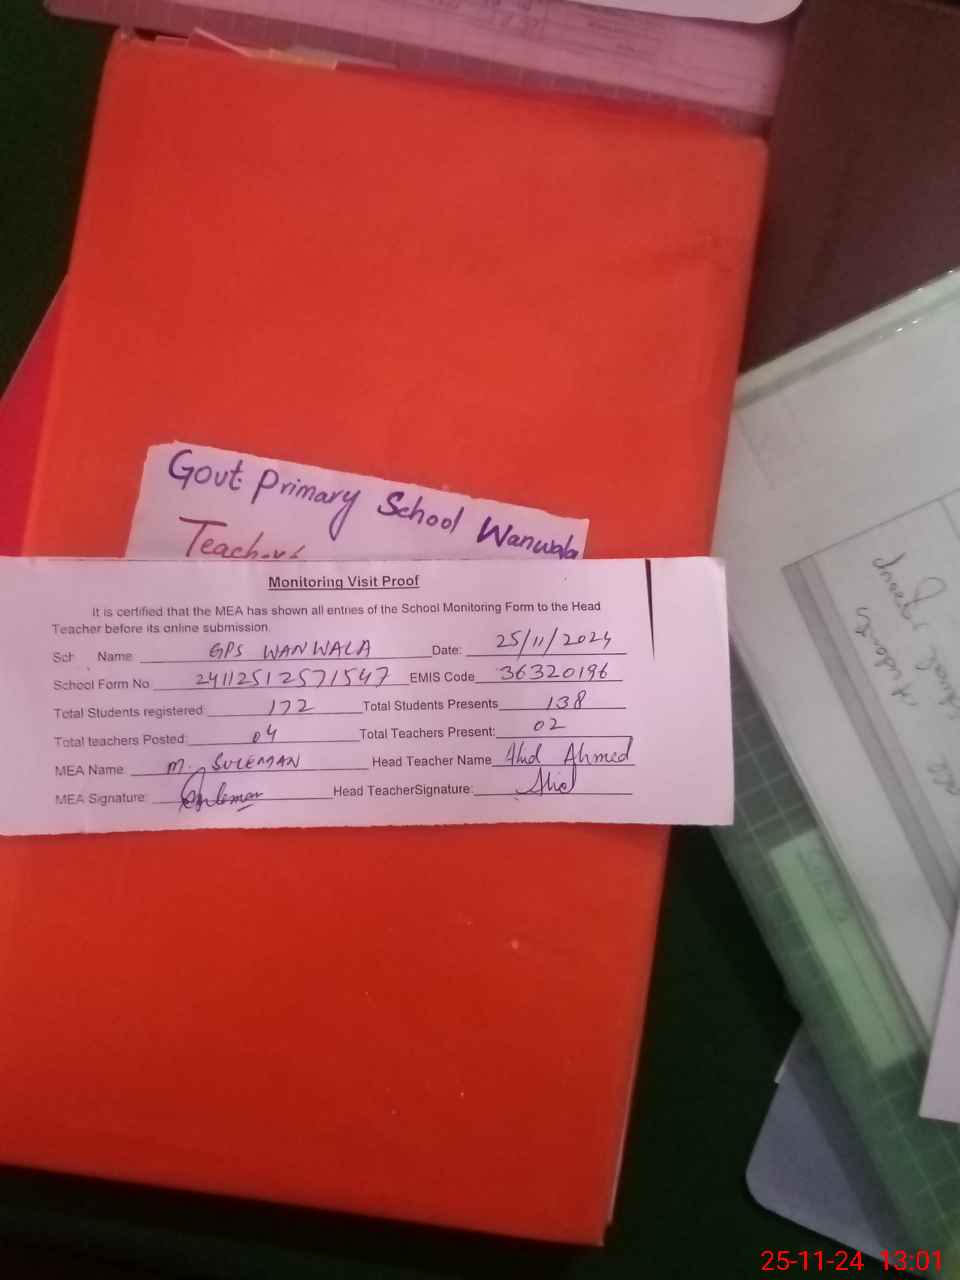 Govt. Primary School Wanwala
Monitoring Visit Proof
It is certified that the MEA has shown all entries of the School Monitoring Form to the Head
Teacher before its online submission.
Sch Name GPS WANWALA Date: 25/11/2024
School Form No 24112512571547 EMIS Code 36320196
Total Students registered: 172 Total Students Presents 138
Total teachers Posted: 04 Total Teachers Present: 02
MEA Name M. SULEMAN Head Teacher Name Ahmed
MEA Signature: Head TeacherSignature:
25-11-24 13:01